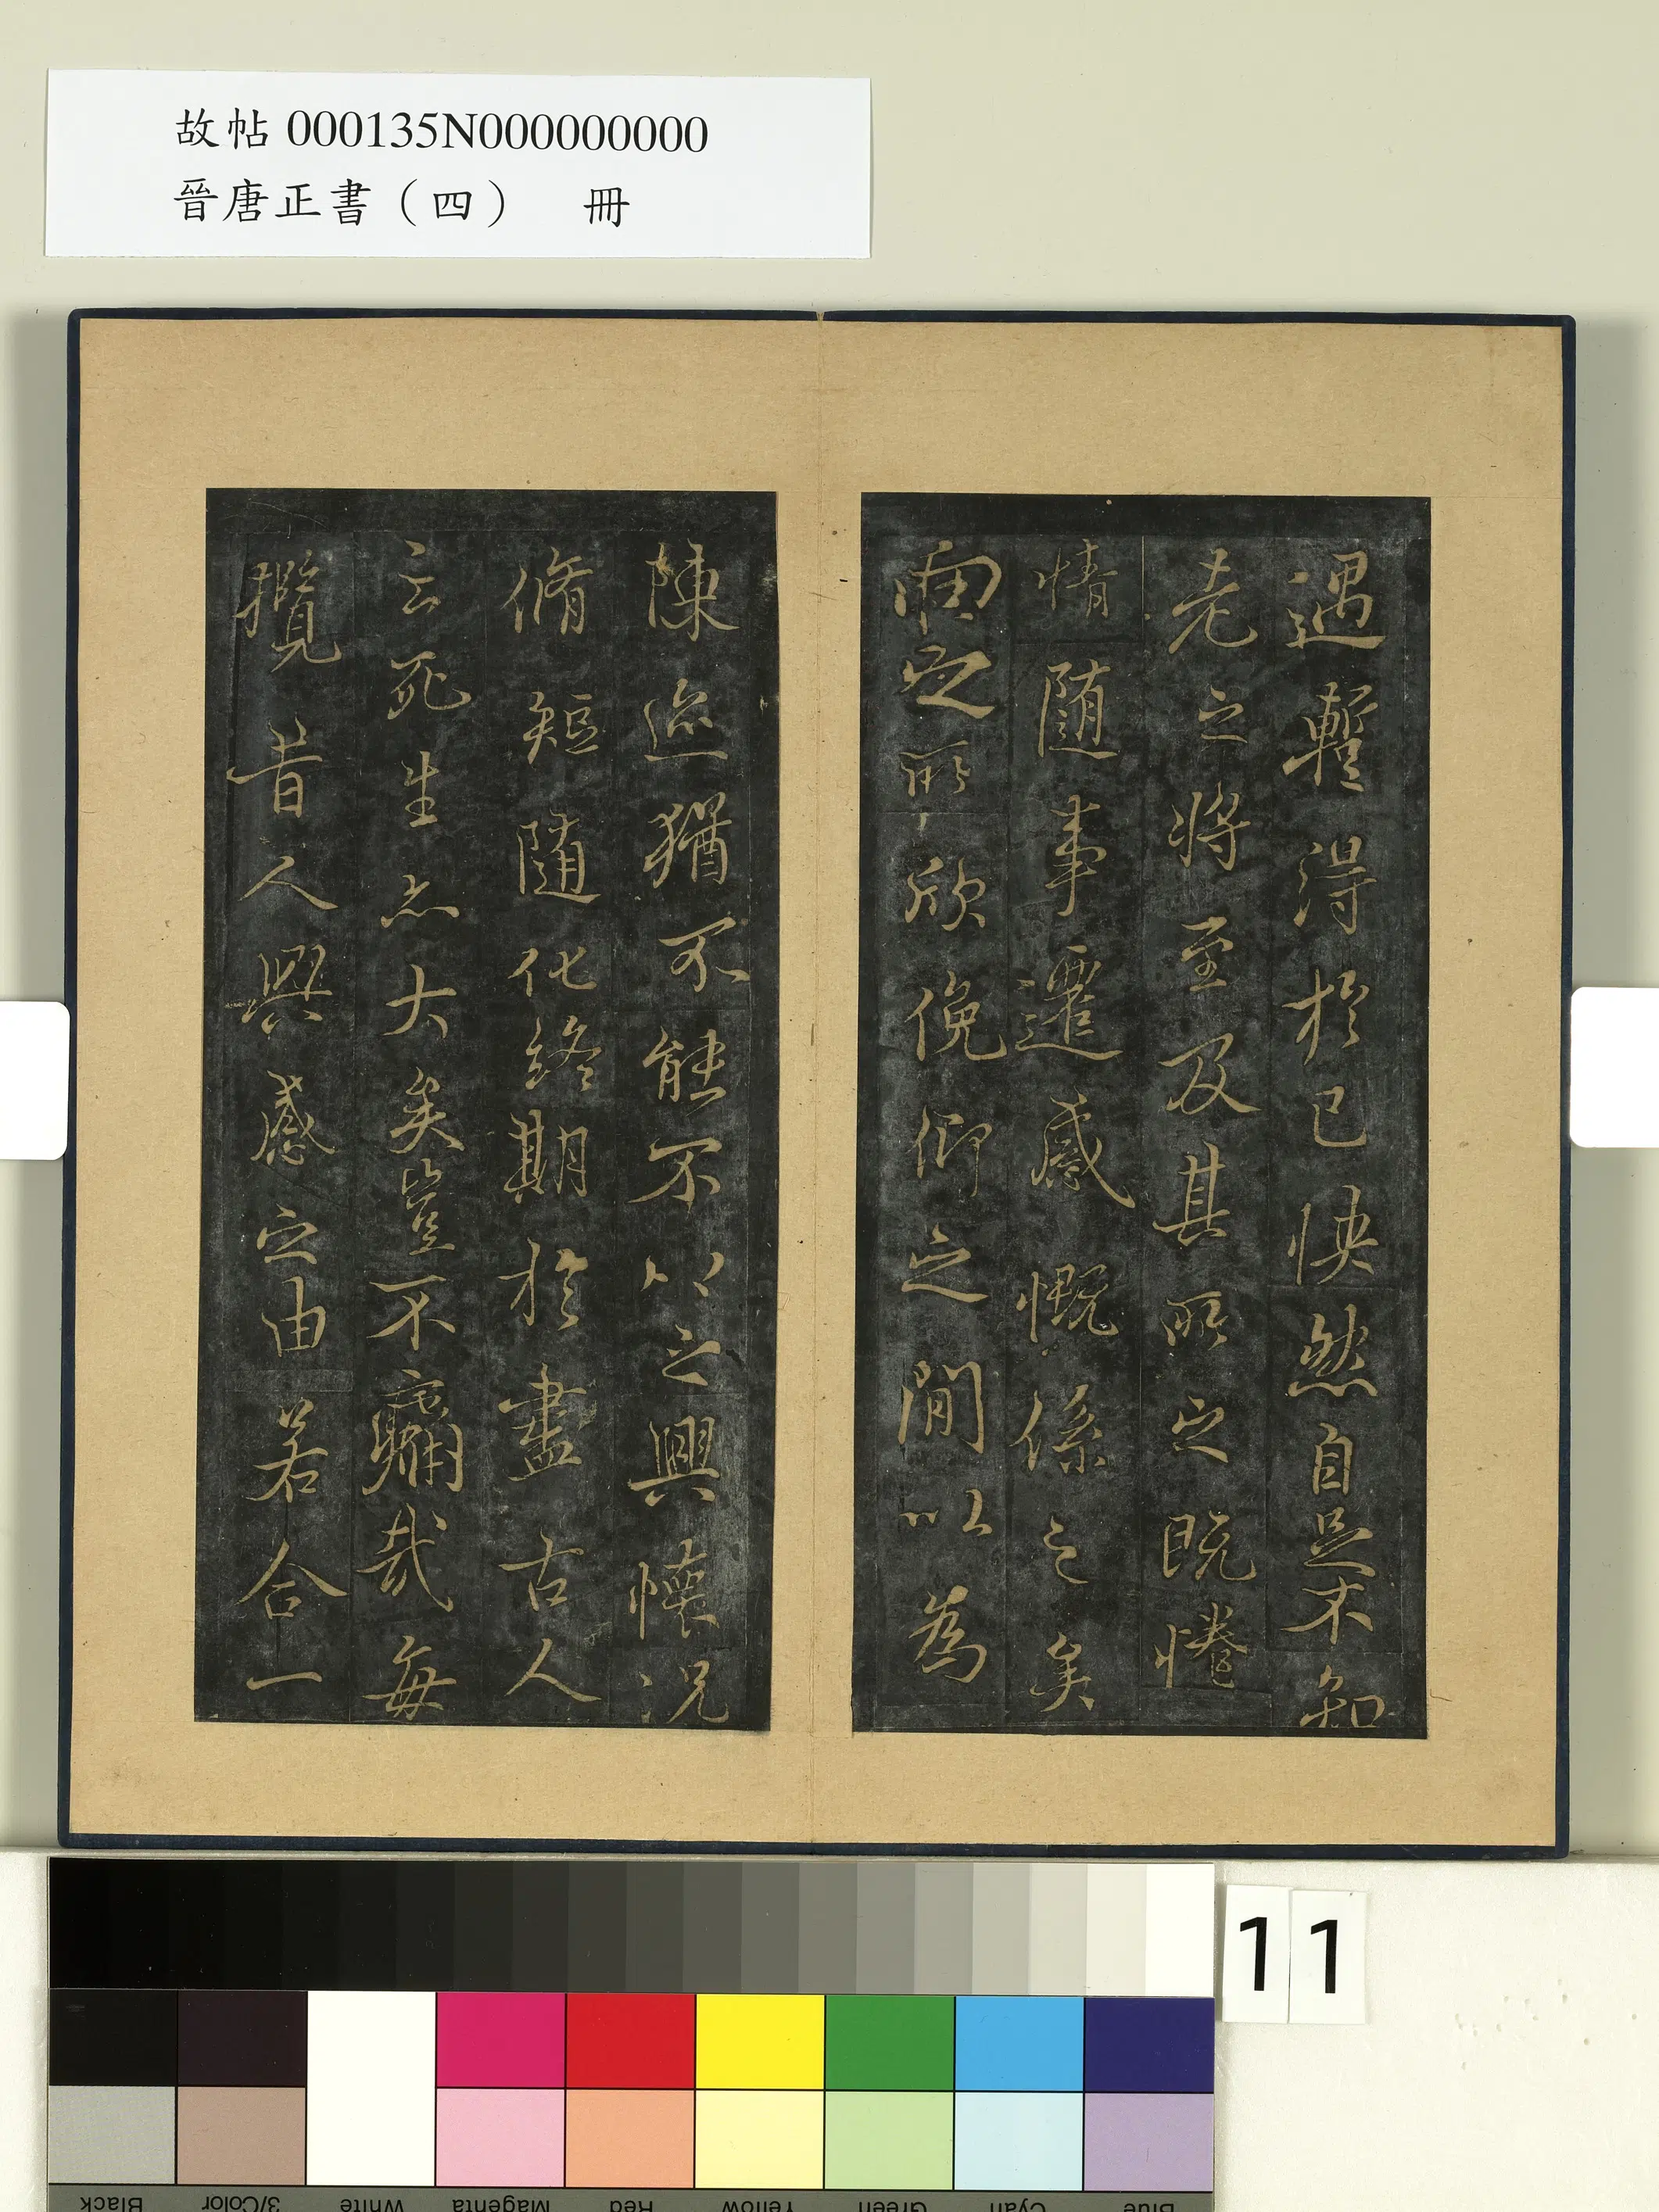 故帖 000135N000000000
晉唐正書（四） 冊
遇暫得於己快然自足不知
老之將至及其所之既惓
情隨事遷感慨係之矣
向之所欣俛仰之閒以為
陳迹猶不能不以之興懷況
脩短隨化終期於盡古人
云死生亦大矣豈不痛哉每
攬昔人興感之由若合一
11
Blue Cyan Green Yellow Red Magenta White 3/Color Black